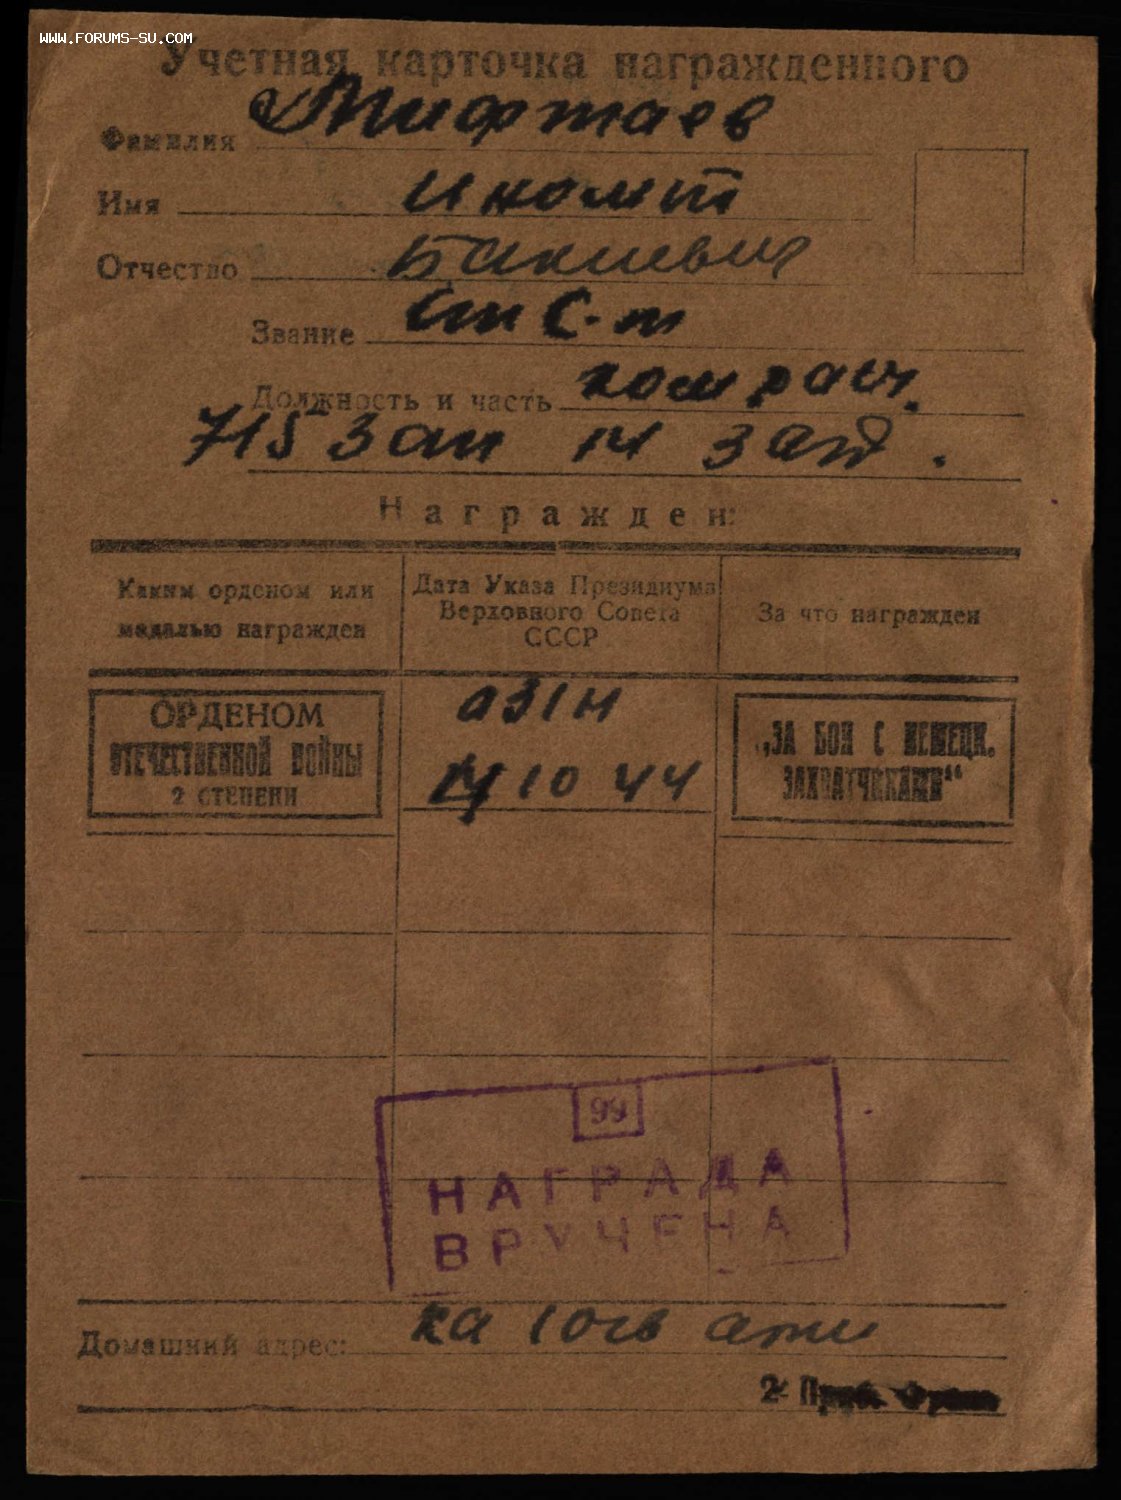 WWW.FORUMS-SU.COM
Учетная карточка награжденного
Фамилия Мифтаев
Имя
Отчество Бакиевич
Звание Ст С-т
Должность и часть ком расч.
715 зап 14 зад.
Награжден:
Каким орденом или медалью награжден
Дата Указа Президиума Верховного Совета СССР
За что награжден
ОРДЕНОМ
ОТЕЧЕСТВЕННОЙ ВОЙНЫ
2 СТЕПЕНИ
031н
14 10 44
„ЗА БОИ С НЕМЕЦК.
ЗАХВАТЧИКАМИ“
99
НАГРАДА
ВРУЧЕНА
Домашний адрес: ка 10 гв
2- Приб.